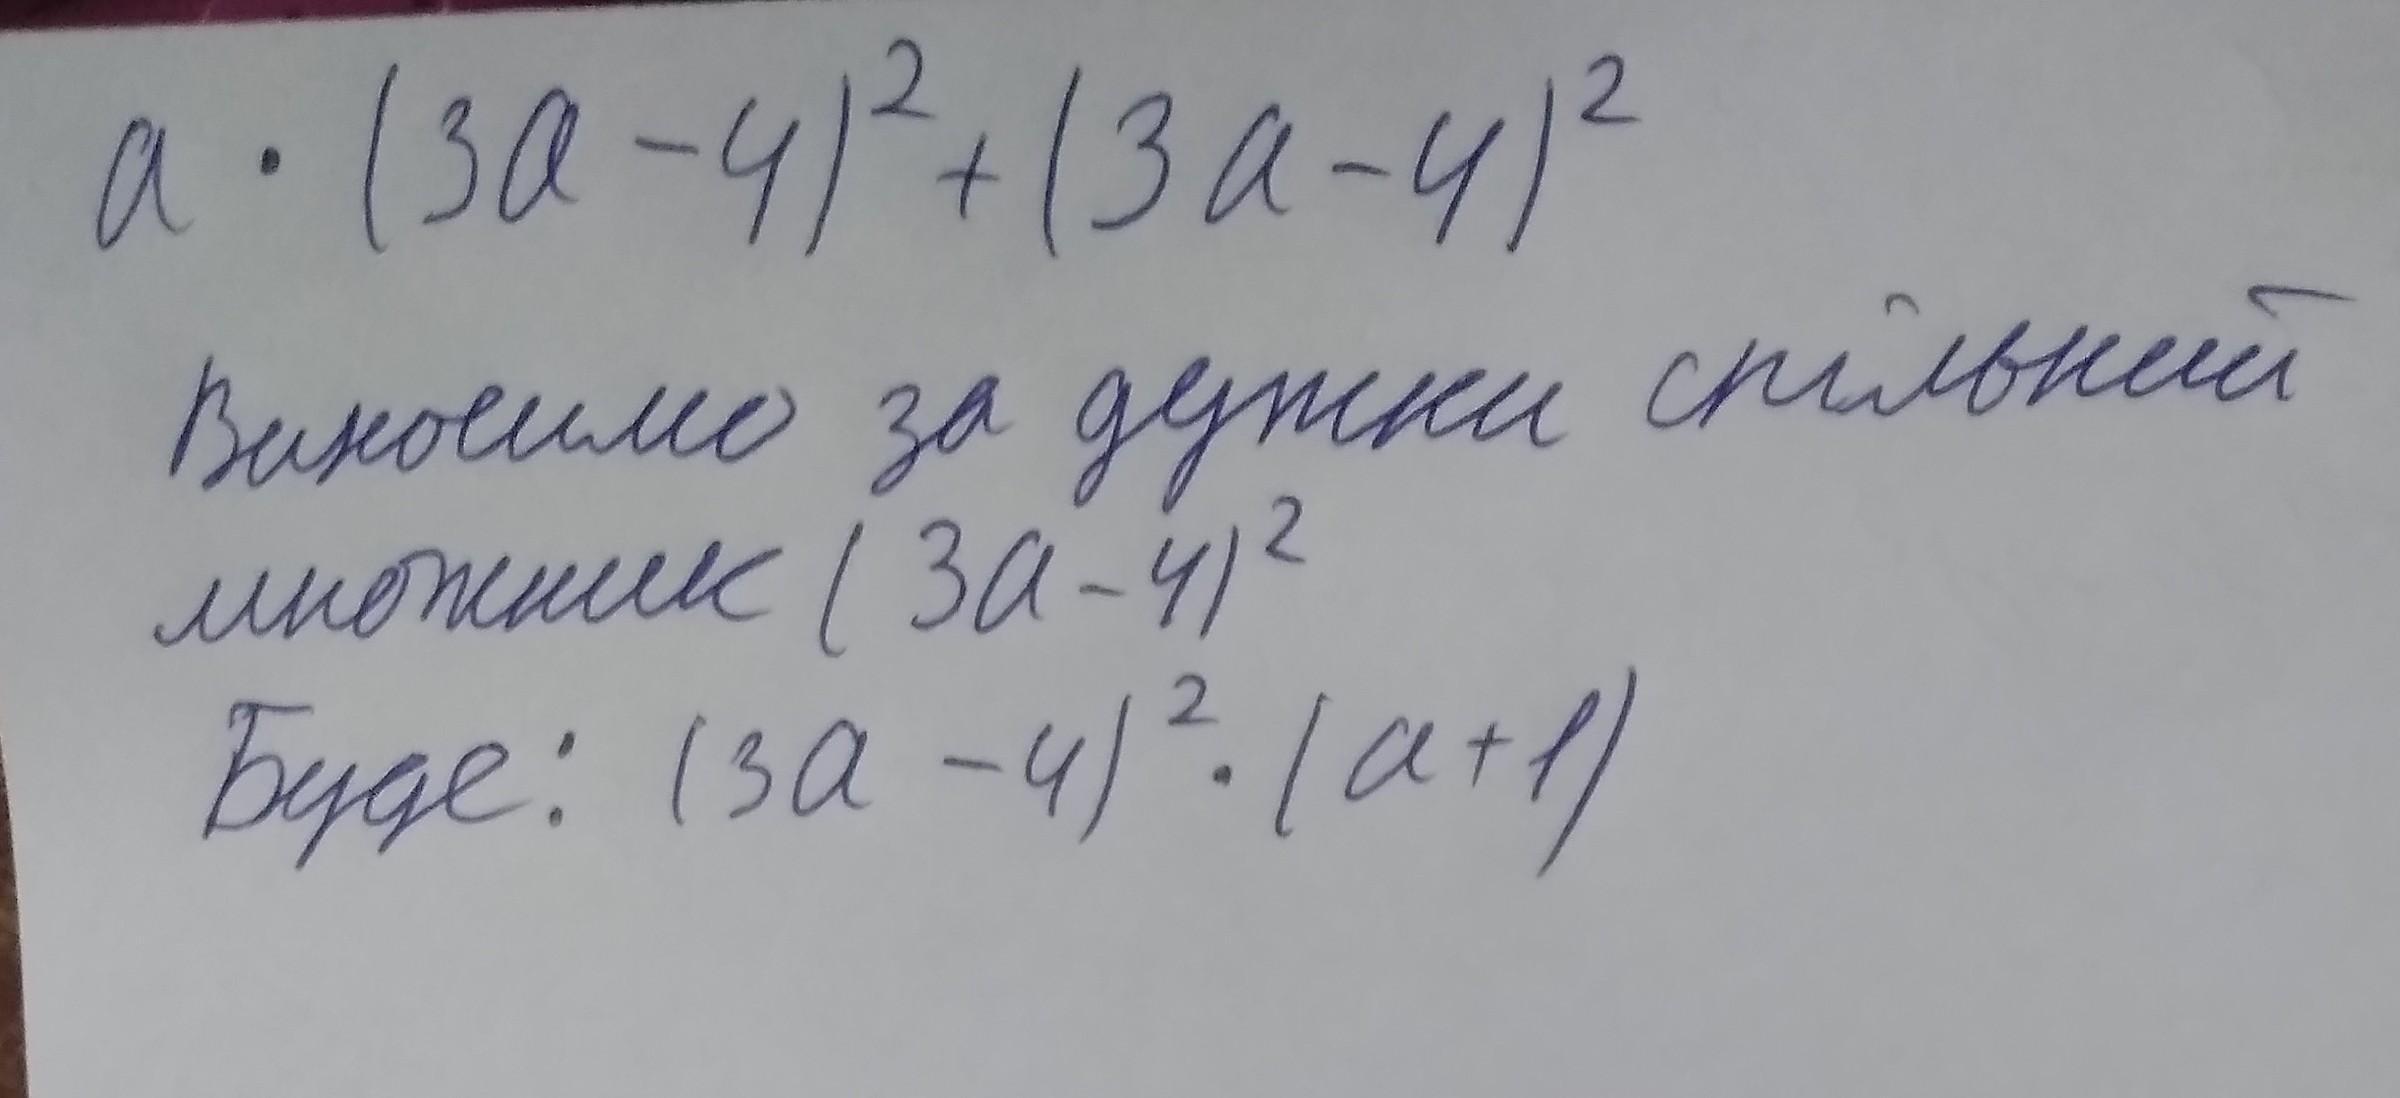 a · (3a - 4)² + (3a - 4)²
Виносимо за дужки спільний
множник (3a - 4)²
Буде: (3a - 4)² · (a + 1)